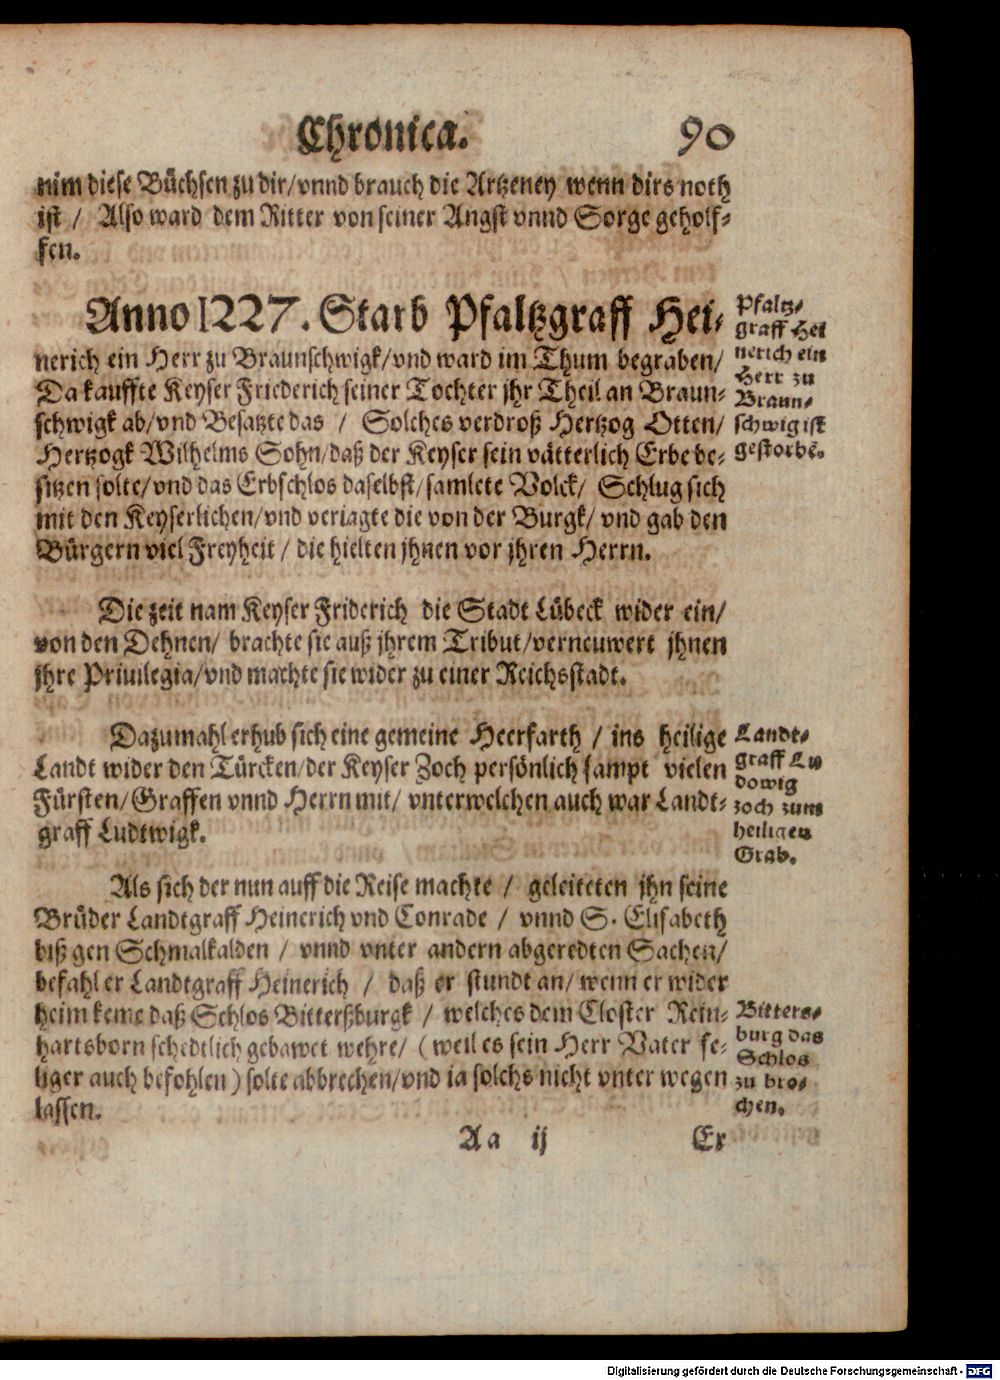 Chronica. 90
nim diese Büchsen zu dir/vnnd brauch die Artzeney wenn dirs noth
ist / Also ward dem Ritter von seiner Angst vnnd Sorge geholf-
fen.
Anno 1227. Starb Pfaltzgraff Hei-
nerich ein Herr zu Braunschwigk/vnd ward im Thum begraben/
Da kauffte Keyser Friederich seiner Tochter jhr Theil an Braun-
schwigk ab/vnd Besatzte das / Solches verdroß Hertzog Otten/
Hertzogk Wilhelms Sohn/daß der Keyser sein vätterlich Erbe be-
sitzen solte/vnd das Erbschlos daselbst/samlete Volck/ Schlug sich
mit den Keyserlichen/vnd veriagte die von der Burgk/ vnd gab den
Bürgern viel Freyheit / die hielten jhnen vor jhren Herrn.
Pfaltz-
graff Hei
nerich ein
Herr zu
Braun-
schwig ist
gestorbē.
Die zeit nam Keyser Friderich die Stadt Lübeck wider ein/
von den Dehnen/ brachte sie auß jhrem Tribut/verneuwert jhnen
jhre Priuilegia/vnd machte sie wider zu einer Reichsstadt.
Dazumahl erhub sich eine gemeine Heerfarth / ins heilige
Landt wider den Türcken/der Keyser Zoch persönlich sampt vielen
Fürsten/Graffen vnnd Herrn mit/ vnterwelchen auch war Landt-
graff Ludtwigk.
Landt-
graff Lu
dowig
zoch zum
heiligen
Grab.
Als sich der nun auff die Reise machte / geleiteten jhn seine
Brüder Landtgraff Heinerich vnd Conrade / vnnd S. Elisabeth
biß gen Schmalkalden / vnnd vnter andern abgeredten Sachen/
befahl er Landtgraff Heinerich / daß er stundt an/ wenn er wider
heim keme daß Schlos Bitterßburgk / welches dem Closter Rein-
hartsborn schedtlich gebawet wehre/ (weil es sein Herr Vater se-
liger auch befohlen) solte abbrechen/vnd ia solchs nicht vnter wegen
lassen.
Bitters-
burg das
Schlos
zu bro-
chen.
Aa ij Er
Digitalisierung gefördert durch die Deutsche Forschungsgemeinschaft - DFG